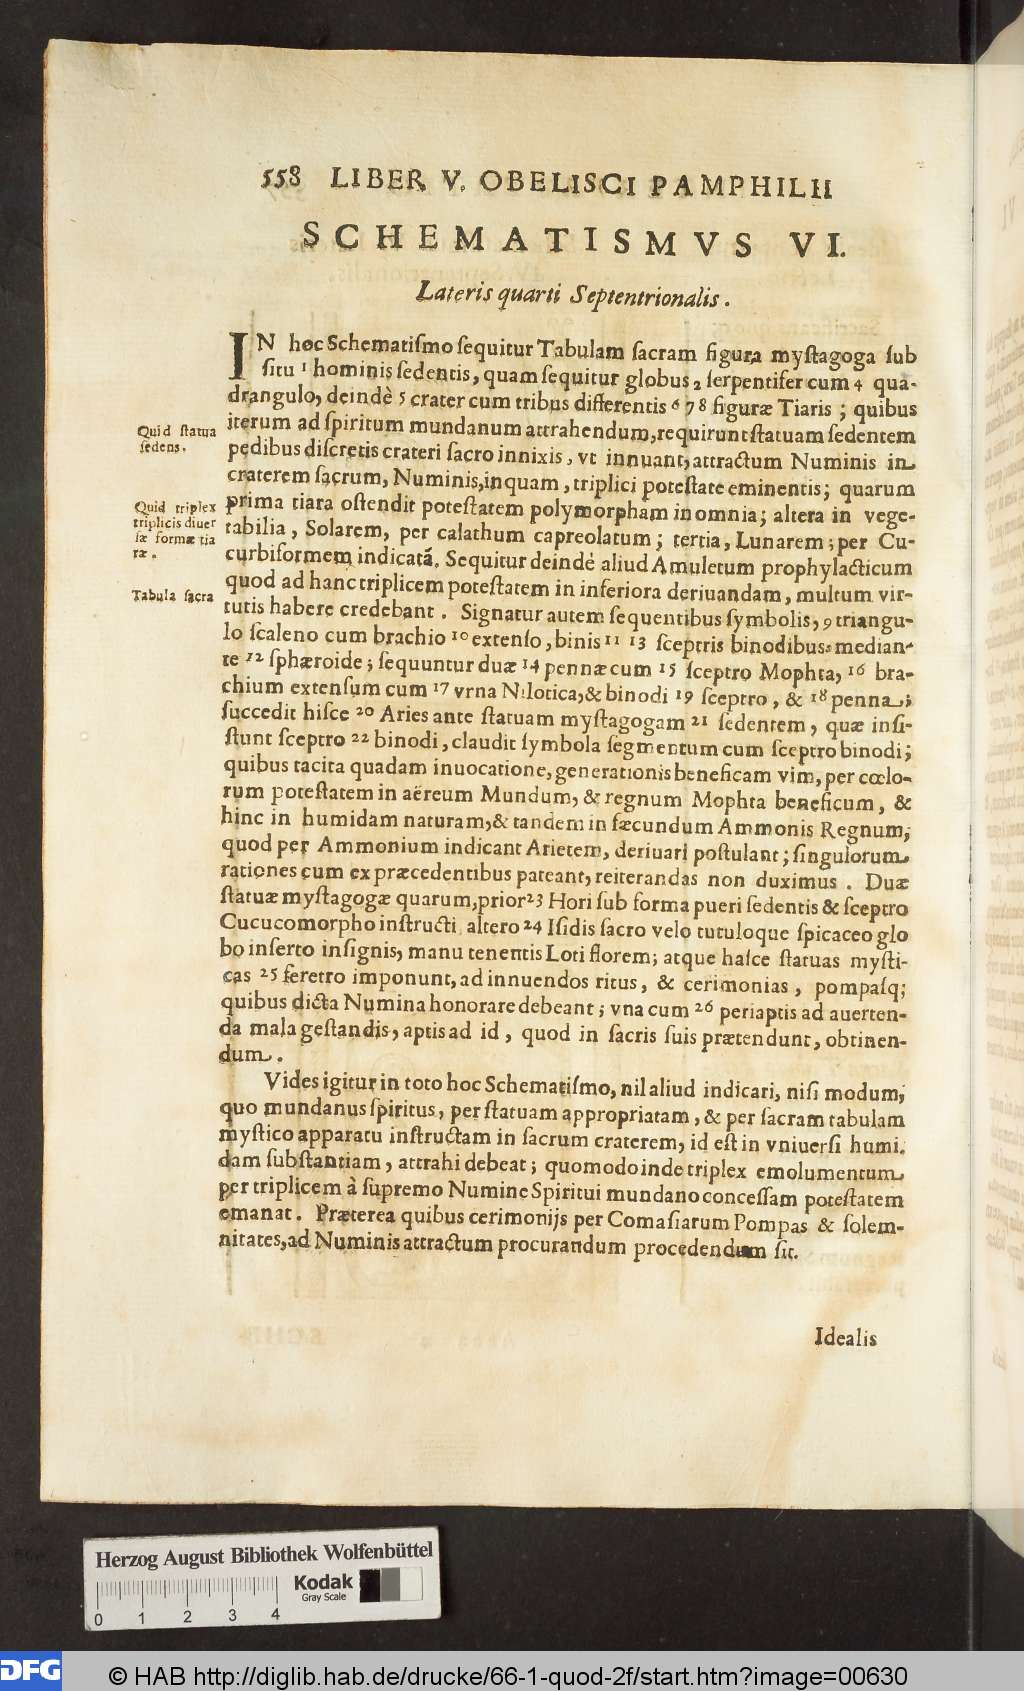 558 LIBER V. OBELISCI PAMPHILII
SCHEMATISMVS VI.
Lateris quarti Septentrionalis.
IN hoc Schematiſmo ſequitur Tabulam ſacram figura myſtagoga ſub
ſitu 1 hominis ſedentis, quam ſequitur globus 2 ſerpentifer cum 4 qua-
drangulo, deindè 5 crater cum tribus differentis 6 7 8 figuræ Tiaris; quibus
iterum ad ſpiritum mundanum attrahendum, requirunt ſtatuam ſedentem
pedibus diſcretis crateri ſacro innixis, vt innuant, attractum Numinis in
craterem ſacrum, Numinis, inquam, triplici poteſtate eminentis; quarum
prima tiara oſtendit poteſtatem polymorpham in omnia; altera in vege-
tabilia, Solarem, per calathum capreolatum; tertia, Lunarem; per Cu-
curbiformem indicatã. Sequitur deindè aliud Amuletum prophylacticum
quod ad hanc triplicem poteſtatem in inferiora deriuandam, multum vir-
tutis habere credebant. Signatur autem ſequentibus ſymbolis, 9 triangu-
lo ſcaleno cum brachio 10 extenſo, binis 11 13 ſceptris binodibus: median-
te 12 ſphæroide; ſequuntur duæ 14 pennæ cum 15 ſceptro Mophta, 16 bra-
chium extenſum cum 17 vrna Nilotica, & binodi 19 ſceptro, & 18 penna;
ſuccedit hiſce 20 Aries ante ſtatuam myſtagogam 21 ſedentem, quæ inſi-
ſtunt ſceptro 22 binodi, claudit ſymbola ſegmentum cum ſceptro binodi;
quibus tacita quadam inuocatione, generationis beneficam vim, per cœlo-
rum poteſtatem in aëreum Mundum, & regnum Mophta beneficum, &
hinc in humidam naturam, & tandem in fæcundum Ammonis Regnum,
quod per Ammonium indicant Arietem, deriuari poſtulant; ſingulorum
rationes cum ex præcedentibus pateant, reiterandas non duximus. Duæ
ſtatuæ myſtagogæ quarum, prior 23 Hori ſub forma pueri ſedentis & ſceptro
Cucucomorpho inſtructi, altero 24 Iſidis ſacro velo tutuloque ſpicaceo glo
bo inſerto inſignis, manu tenentis Loti florem; atque haſce ſtatuas myſti-
cas 25 feretro imponunt, ad innuendos ritus, & cerimonias, pompaſq;
quibus dicta Numina honorare debeant; vna cum 26 periaptis ad auerten-
da mala geſtandis, aptis ad id, quod in ſacris ſuis prætendunt, obtinen-
dum.
Vides igitur in toto hoc Schematiſmo, nil aliud indicari, niſi modum,
quo mundanus ſpiritus, per ſtatuam appropriatam, & per ſacram tabulam
myſtico apparatu inſtructam in ſacrum craterem, id eſt in vniuerſi humi.
dam ſubſtantiam, attrahi debeat; quomodo inde triplex emolumentum
per triplicem à ſupremo Numine Spiritui mundano conceſſam poteſtatem
emanat. Præterea quibus cerimonijs per Comaſiarum Pompas & ſolem-
nitates, ad Numinis attractum procurandum procedendum ſit.
Idealis
Quid ſtatua
ſedens.
Quid triplex
triplicis diuer
ſæ formæ tia
ræ.
Tabula ſacra
Herzog August Bibliothek Wolfenbüttel
Kodak
Gray Scale
0 1 2 3 4
DFG
© HAB http://diglib.hab.de/drucke/66-1-quod-2f/start.htm?image=00630